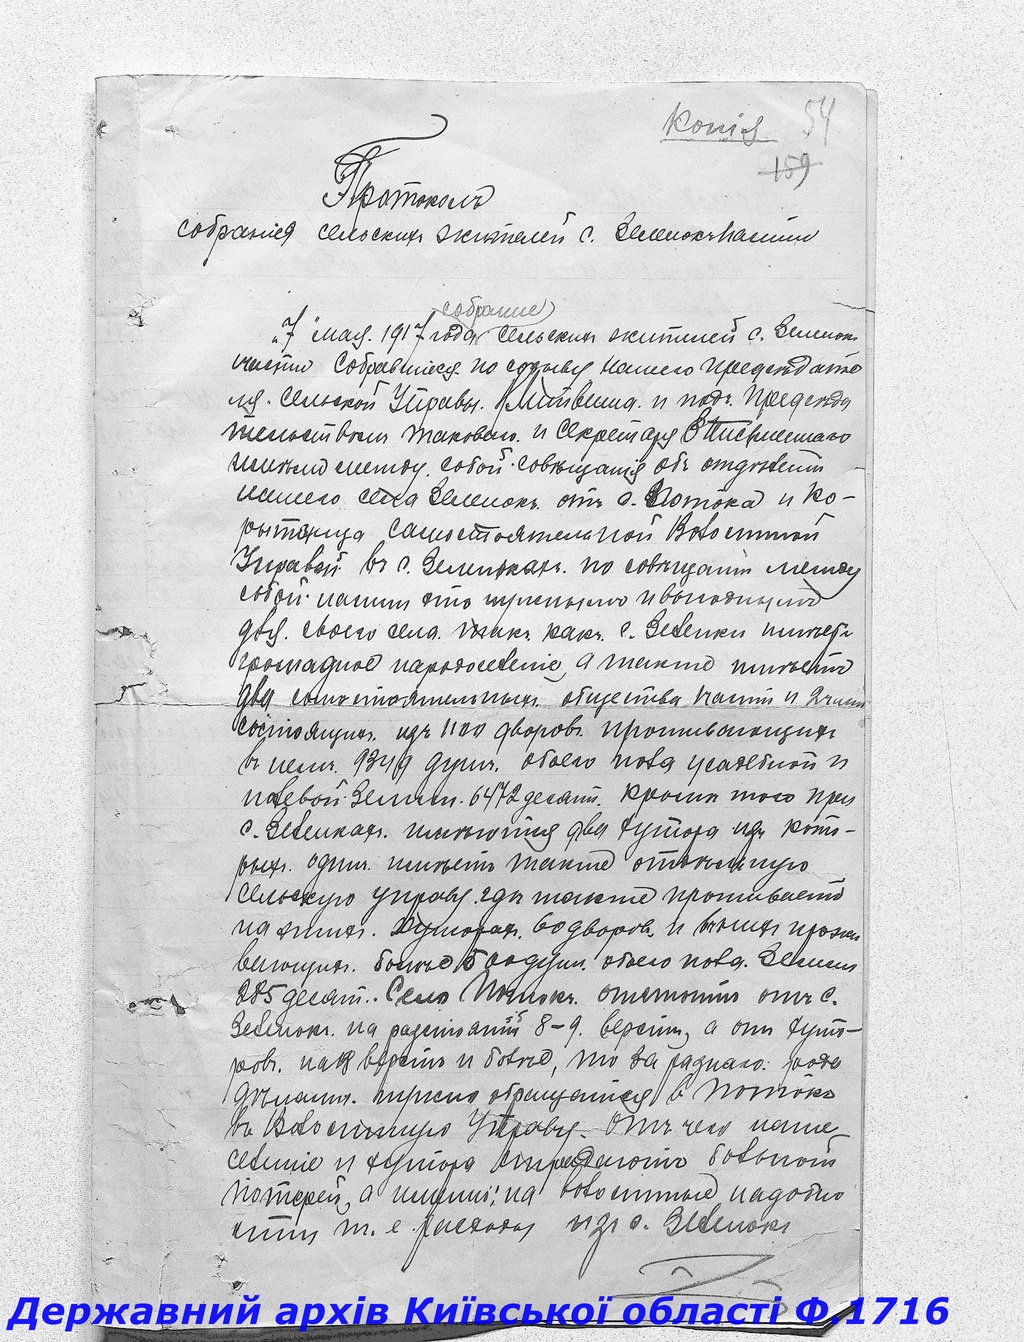 Копія. 54
159
Протоколъ
собранія сельскихъ жителей с. Зеленокъ
собраніе
„7" мая. 1917 года сельскихъ жителей с. Зеленокъ
собравшіеся по созыву нашего Председате
ля. сельской Управы. и подъ. Председа
тельствомъ таковаго. и секретаря
между. собой. совещанія объ отделеніи
нашего села Зеленокъ. отъ с. Потока и Ко-
рытища самостоятельной Волостной
Управой въ с. Зеленкахъ. по совещаніи между
собой. нашли это нужнымъ и выгоднымъ
для. своего села. такъ какъ. с. Зеленки имеетъ
громадное народоселеніе, а также имеетъ
два самостоятельныхъ. общества части и 2 части
состоящихъ. изъ 1100 дворовъ. проживающихъ
въ нихъ. 9349 душъ. обоего пола усадебной и
полевой. Земли. 6472 десят. кроме того при
с. Зеленкахъ. имеются два хутора изъ кото-
рыхъ. одинъ. имеетъ также отдельную
сельскую управу. где также проживаетъ
на этихъ. хуторахъ. 60 дворовъ. и въ нихъ прожи
вающихъ. более душъ. обоего пола. Земли
285 десят.. Село Потокъ. отстоитъ отъ с.
Зеленокъ. на разстояніи 8-9. верстъ, а отъ хуто-
ровъ. на верстъ и более, то за разнаго. рода
делами. нужно обращатся в Потокъ
въ Волостную Управу. Отъ чего наше
селеніе и хутора страдаютъ большой
потерей, а именно: на волостные надобно
сти т. е. расходы изъ с. Зеленокъ
Державний архів Київської області Ф.1716